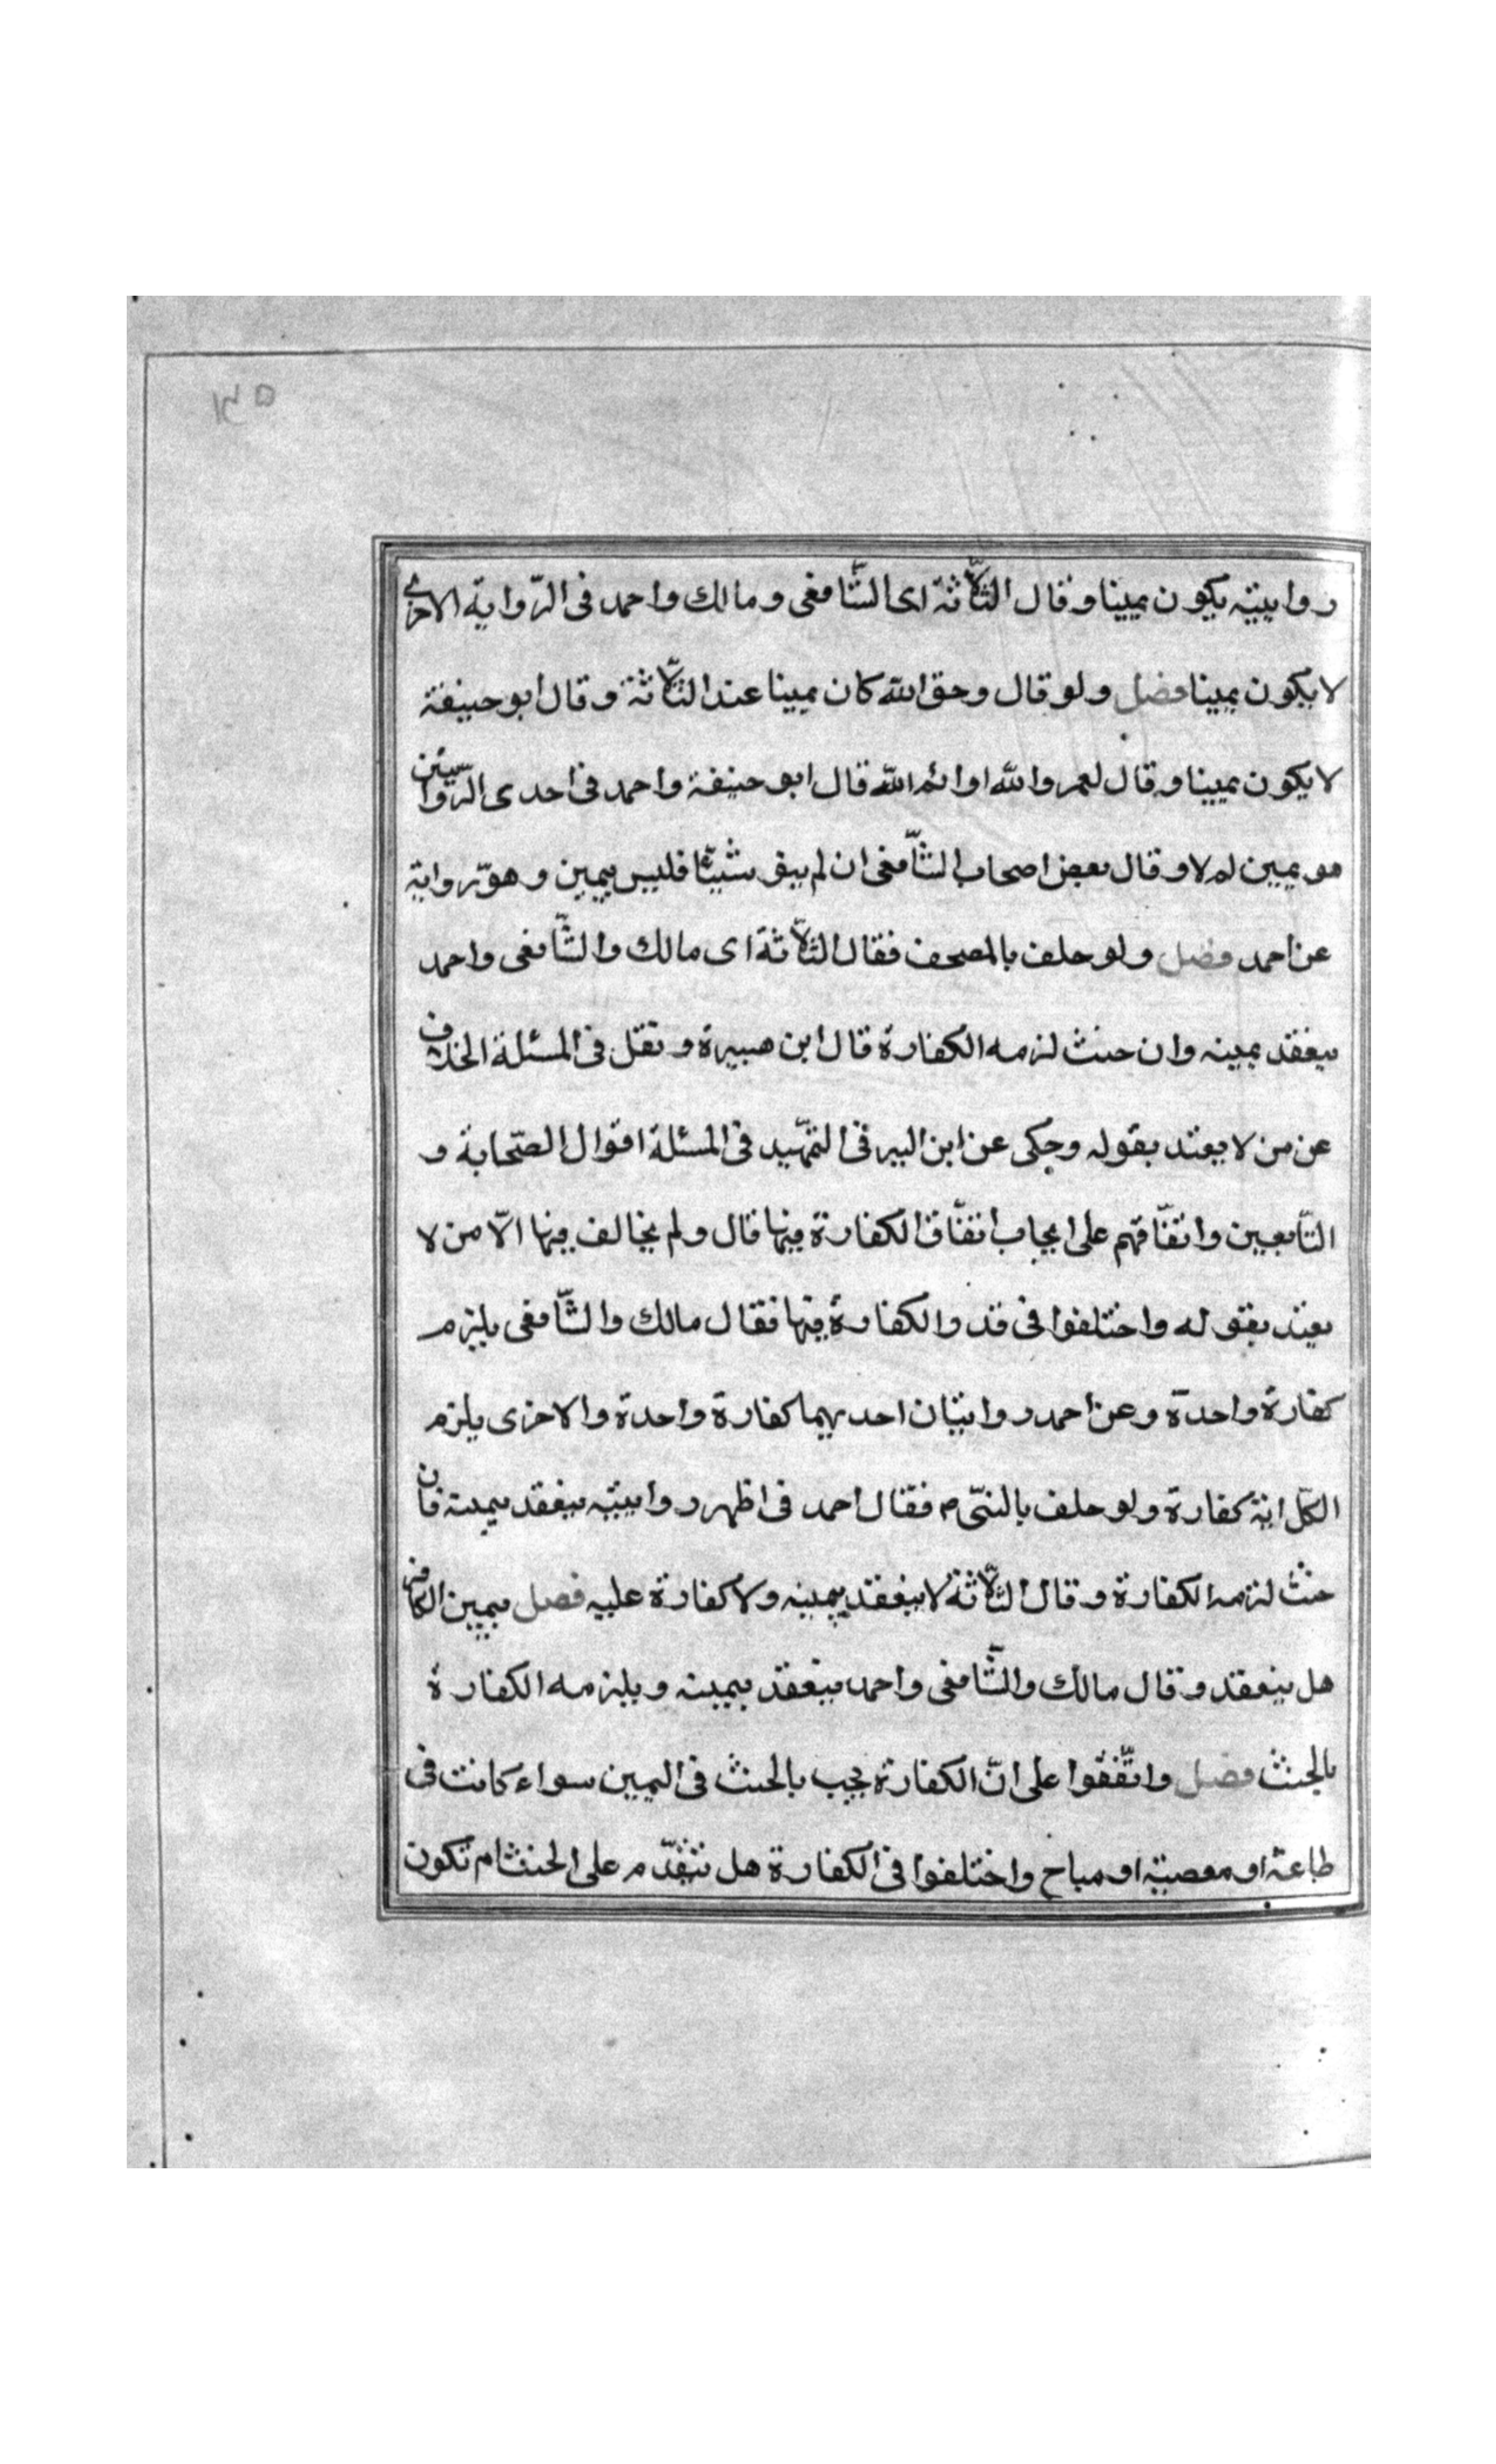 ١٣٥
روايتيه يكون يمينا وقال الثّلاثة اى الشّافعى ومالك واحمد فى الرّواية الاخرى
لا يكون يمينا فصل ولو قال وحق الله كان يمينا عند الثّلاثة وقال ابو حنيفة
لا يكون يمينا وقال لعمر والله او ائم الله قال ابو حنيفة واحمد فى احدى الرّوايتين
هو يمين اولا وقال بعض اصحاب الشّافعى ان لم ينو شيئا فليس بيمين وهو رواية
عن احمد فصل ولو حلف بالمصحف فقال الثّلاثة اى مالك والشّافعى واحمد
ينعقد يمينه وان حنث لزمه الكفارة قال ابن هبيرة ونقل فى المسئلة الخلاف
عن من لا يعتد بقوله وحكى عن ابن البر فى التمهيد فى المسئلة اقوال الصّحابة و
التّابعين واتفّاقهم على ايجاب اتفّاق الكفارة فيها قال ولم يخالف فيها الّا من لا
يعتد بقوله واختلفوا فى قدر والكفارة فيها فقال مالك والشّافعى يلزم
كفارة واحدة وعن احمد روايتان احديهما كفارة واحدة والاخرى يلزم
الكلّ اية كفارة ولو حلف بالنبىّ م فقال احمد فى اظهر روايتيه ينعقد يمينه فان
حنث لزمه الكفارة وقال الثّلاثة لا ينعقد يمينه ولا كفارة عليه فصل يمين الكافر
هل ينعقد وقال مالك والشّافعى واحمد ينعقد يمينه ويلزمه الكفارة
بالحنث فصل واتّفقوا على انّ الكفارة يجب بالحنث فى اليمين سواء كانت فى
طاعة او معصية او مباح واختلفوا فى الكفارة هل تتقدّم على الحنث ام تكون